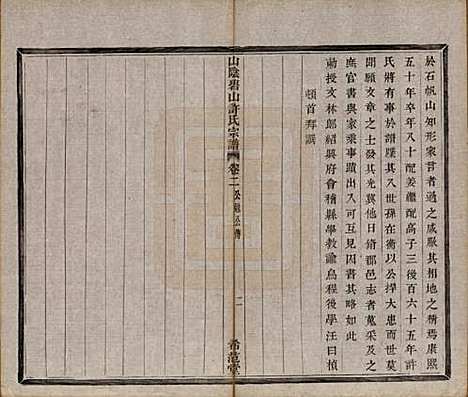 於石帆山知形家言者過之咸厭其相地之精焉康熙
五十年卒年八十配姜繼配高子三後百六十五年許
氏將有事於譜牒其八世孫在衡以公捍大患而世無
聞願文章之士發其光冀他日脩郡邑志者蒐采及之
無官書與家乘事蹟出入者其略如此
勅授文林郎紹興府會稽縣學教諭烏程後學汪曰楨
頓首拜譔
山陰碧山許氏宗譜
卷二
二
希范堂